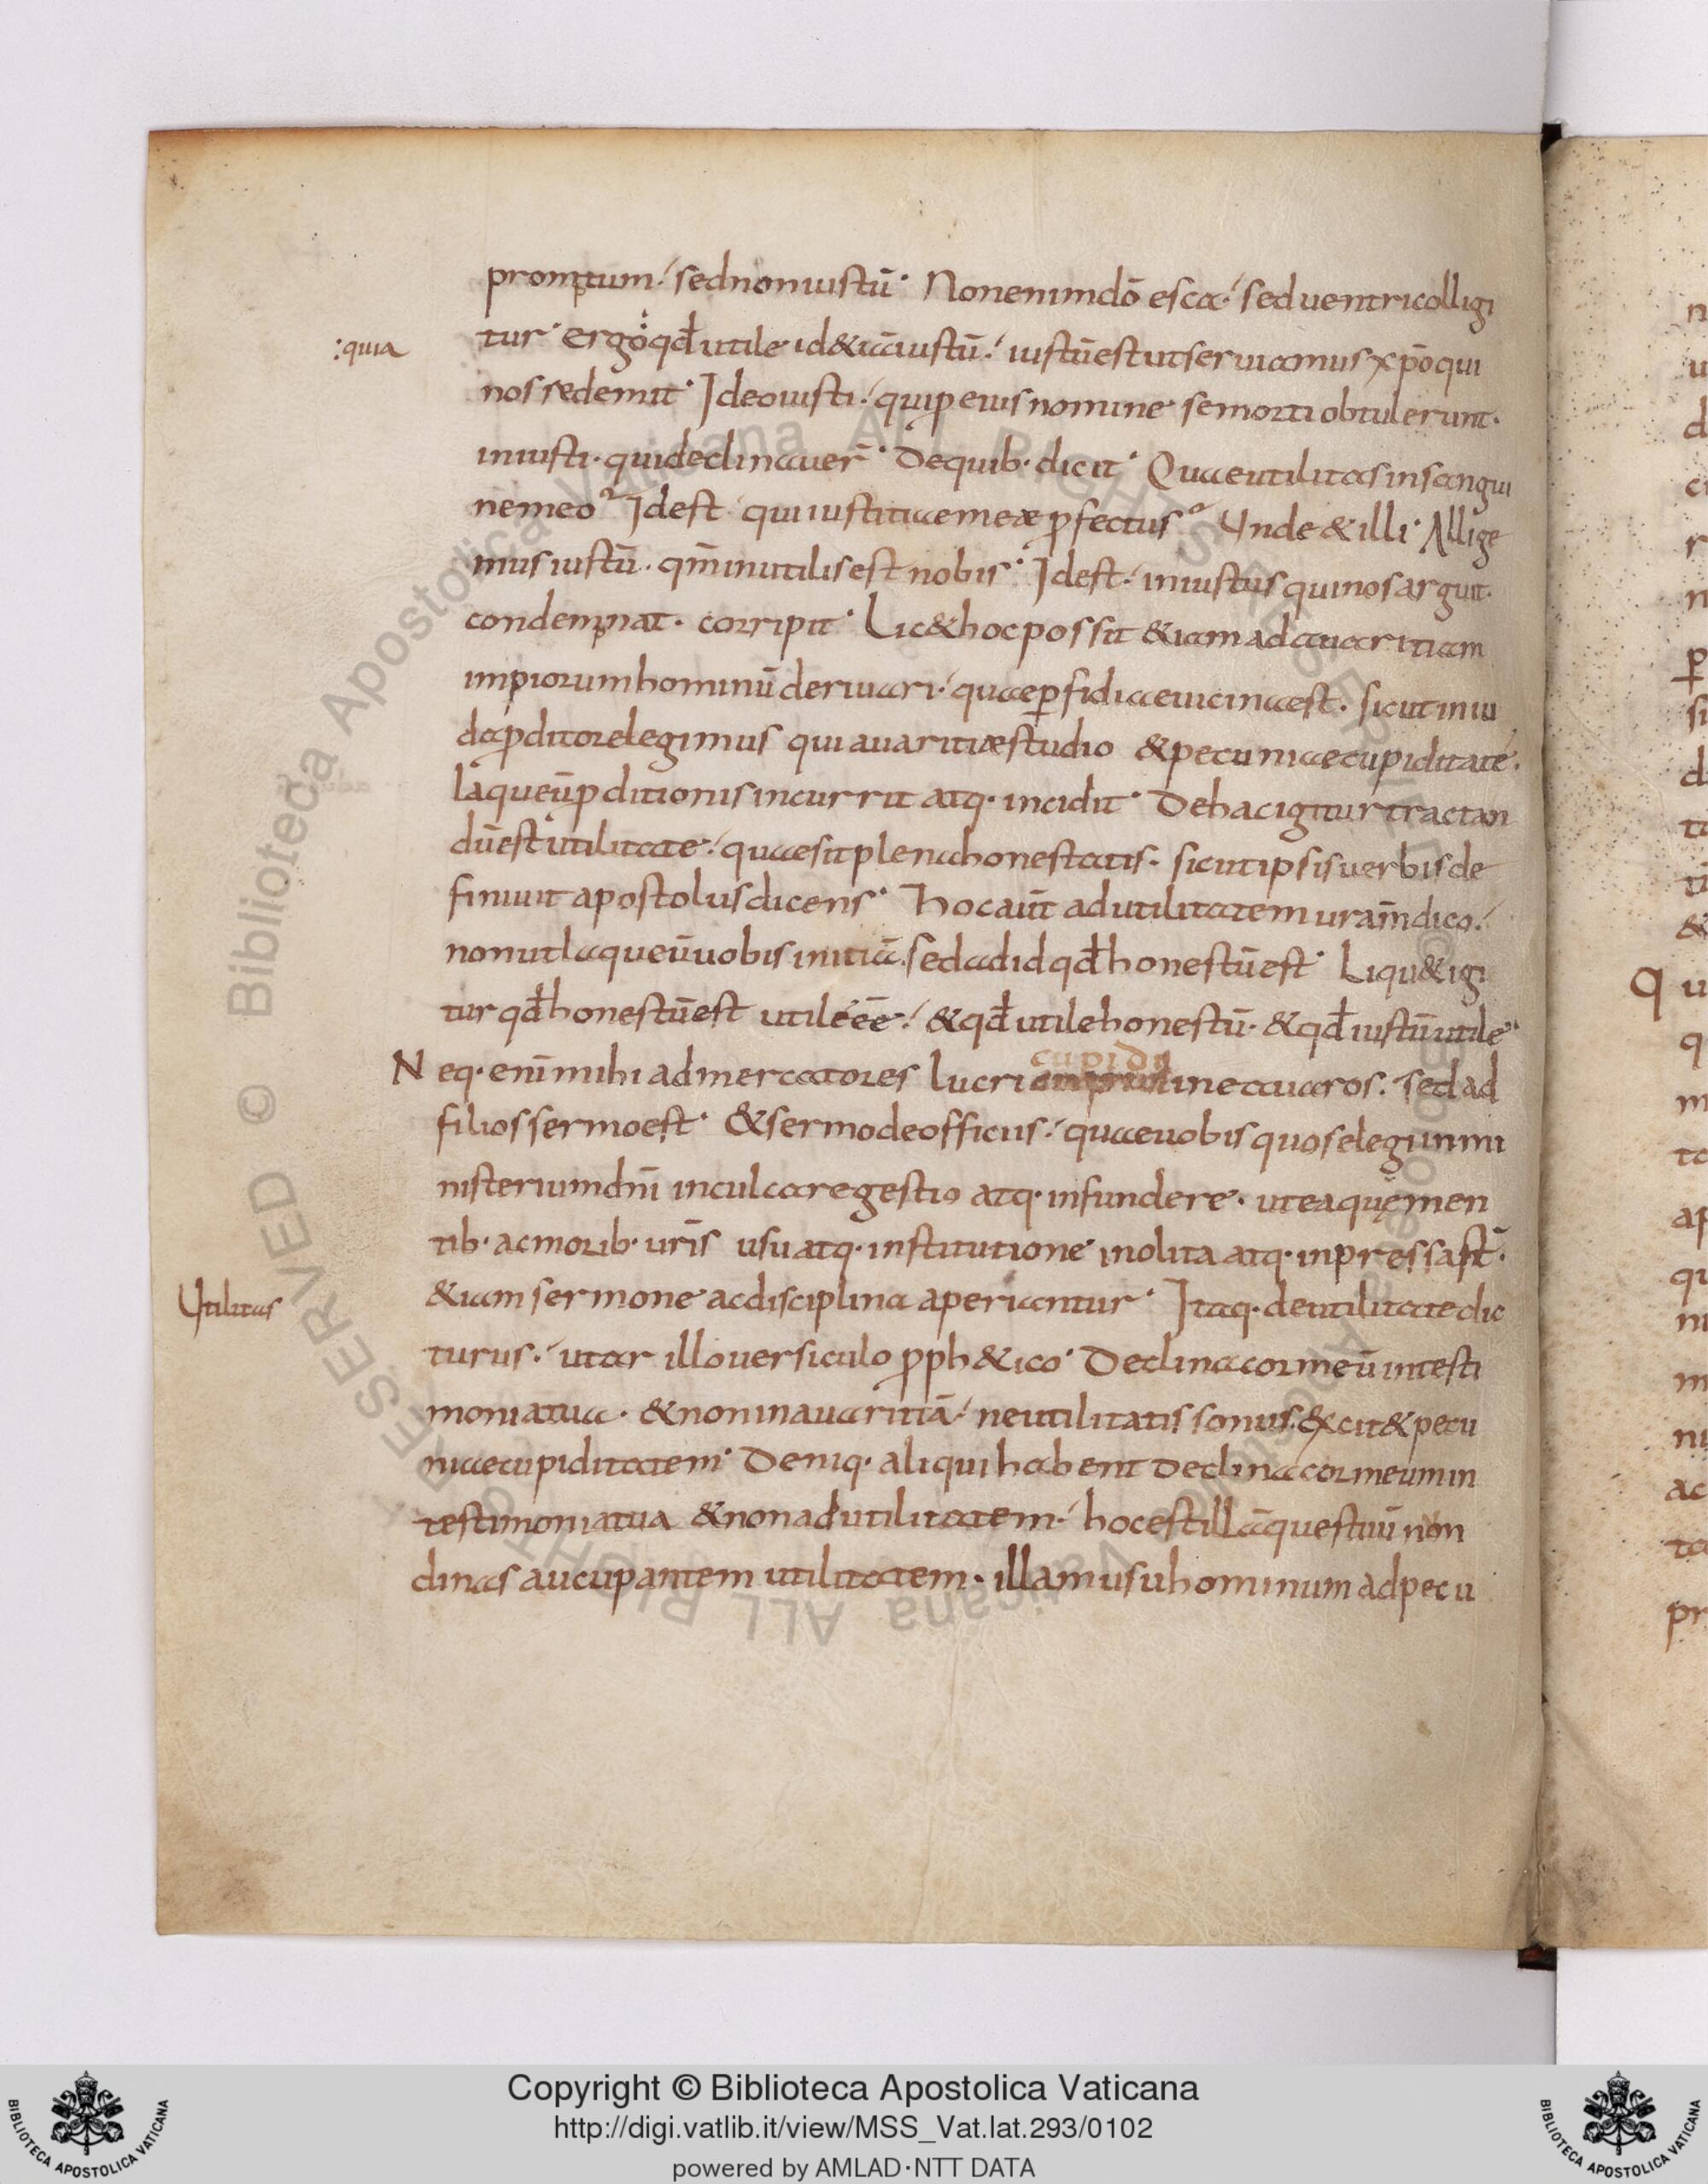 promptum. sed non iustū. Non enim dō esca. sed uentri colligi
:quia
tur. Ergo qđ utile id & iā iustū. iustū est ut seruiamus xp̄o qui
nos redemit. Ideo iusti. qui p eius nomine se morti obtulerunt.
iniusti. qui declinauer̄. De quib. dicit. Quae utilitas in sangui
ne meo? Id est qui iustitiae meæ pfectus? Unde & illi. Allige
mus iustū. qm̄ inutilis est nobis. Id est. iniustus qui nos arguit.
condempnat. corripit. Lic& hoc possit &iam ad auaritiam
impiorum hominū deriuari. quae pfidiae uicina est. sicut in iu
da pditore legimus qui auaritiæ studio & pecuniae cupiditate.
laqueū pditionis incurrit atq. incidit. De hac igitur tractan
dū est utilitate. quae sit plena honestatis. sicut ipsis uerbis de
finiuit apostolus dicens. Hoc aūt ad utilitatem uram̄ dico.
non ut laqueū uobis initiā. sed ad id qđ honestū est. Liqu& igi
tur qđ honestū est utile ēē. & qđ utile honestū. & qđ iustū utile
cupido
Neq. eni mihi ad mercatores lucri ine auaros. sed ad
filios sermo est. & sermo de officiis. quae uobis quos elegi in mi
nisterium dnī inculcare gestio atq. infundere. ut ea quę men
tib. ac morib. uris̄ usu atq. institutione inolita atq. inpressa st̄.
Utilitas
&iam sermone ac disciplina aperiantur. Itaq. de utilitate dic
turus. utar illo uersiculo pph&ico. Declina cor meū in testi
monia tua. & non in auaritiā. ne utilitatis sonus. excit& pecu
niae cupiditatem. Deniq. aliqui habent Declina cor meum in
testimonia tua & non ad utilitatem. hoc est illā questuū non
dinas aucupantem utilitatem. illam usu hominum ad pecu
Copyright © Biblioteca Apostolica Vaticana
http://digi.vatlib.it/view/MSS_Vat.lat.293/0102
powered by AMLAD·NTT DATA
BIBLIOTECA APOSTOLICA VATICANA
BIBLIOTECA APOSTOLICA VATICANA